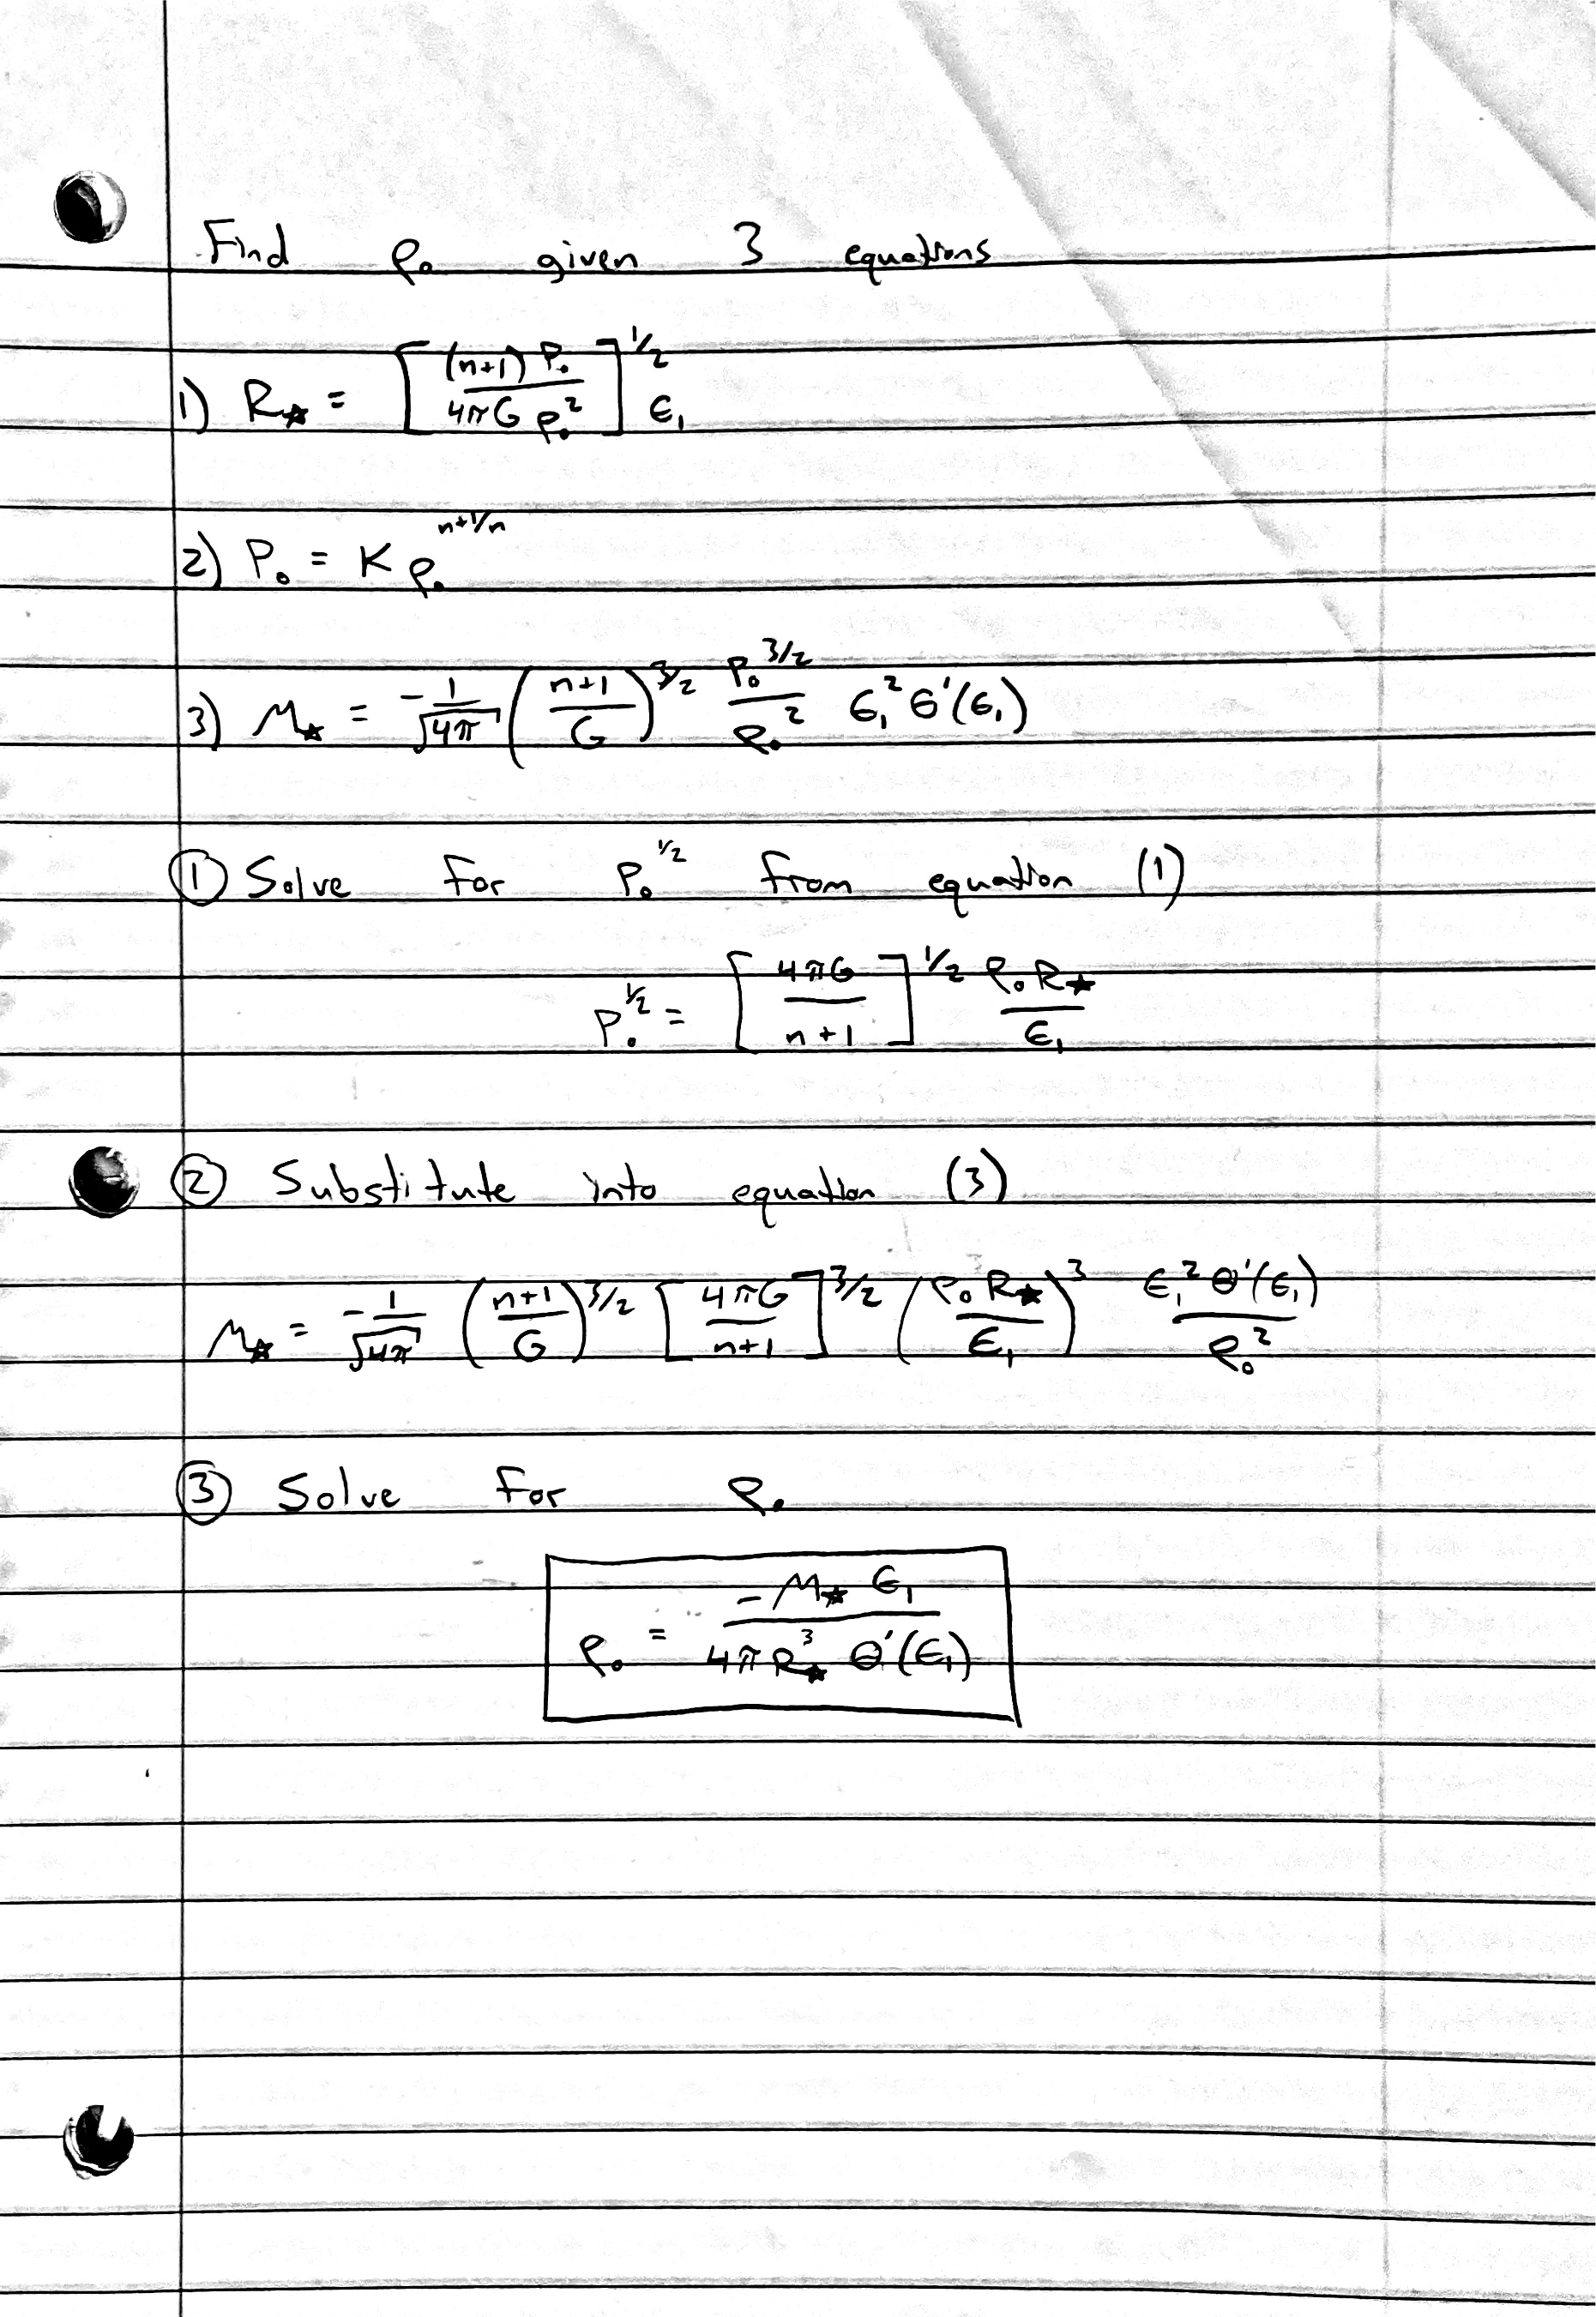 Find ρ₀ given 3 equations
1) R★ = [ (n+1) P₀ / 4πG ρ₀² ]^1/2 ϵ₁
2) P₀ = K ρ₀^n+1/n
3) M★ = -1/√4π ( n+1 / G )^3/2 P₀^3/2 / ρ₀² ϵ₁² θ'(ϵ₁)
① Solve for P₀^1/2 from equation (1)
P₀^1/2 = [ 4πG / n+1 ]^1/2 ρ₀ R★ / ϵ₁
② Substitute into equation (3)
M★ = -1/√4π ( n+1 / G )^3/2 [ 4πG / n+1 ]^3/2 ( ρ₀ R★ / ϵ₁ )^3 ϵ₁² θ'(ϵ₁) / ρ₀²
③ Solve for ρ₀
ρ₀ = -M★ ϵ₁ / 4π R★³ θ'(ϵ₁)